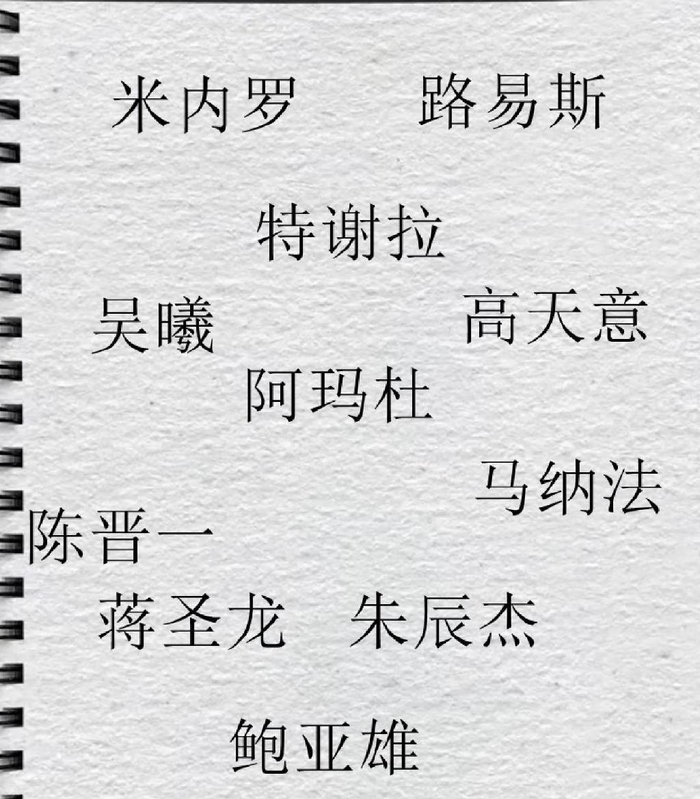 米内罗 路易斯
特谢拉
吴曦 高天意
阿玛杜
马纳法
陈晋一
蒋圣龙 朱辰杰
鲍亚雄